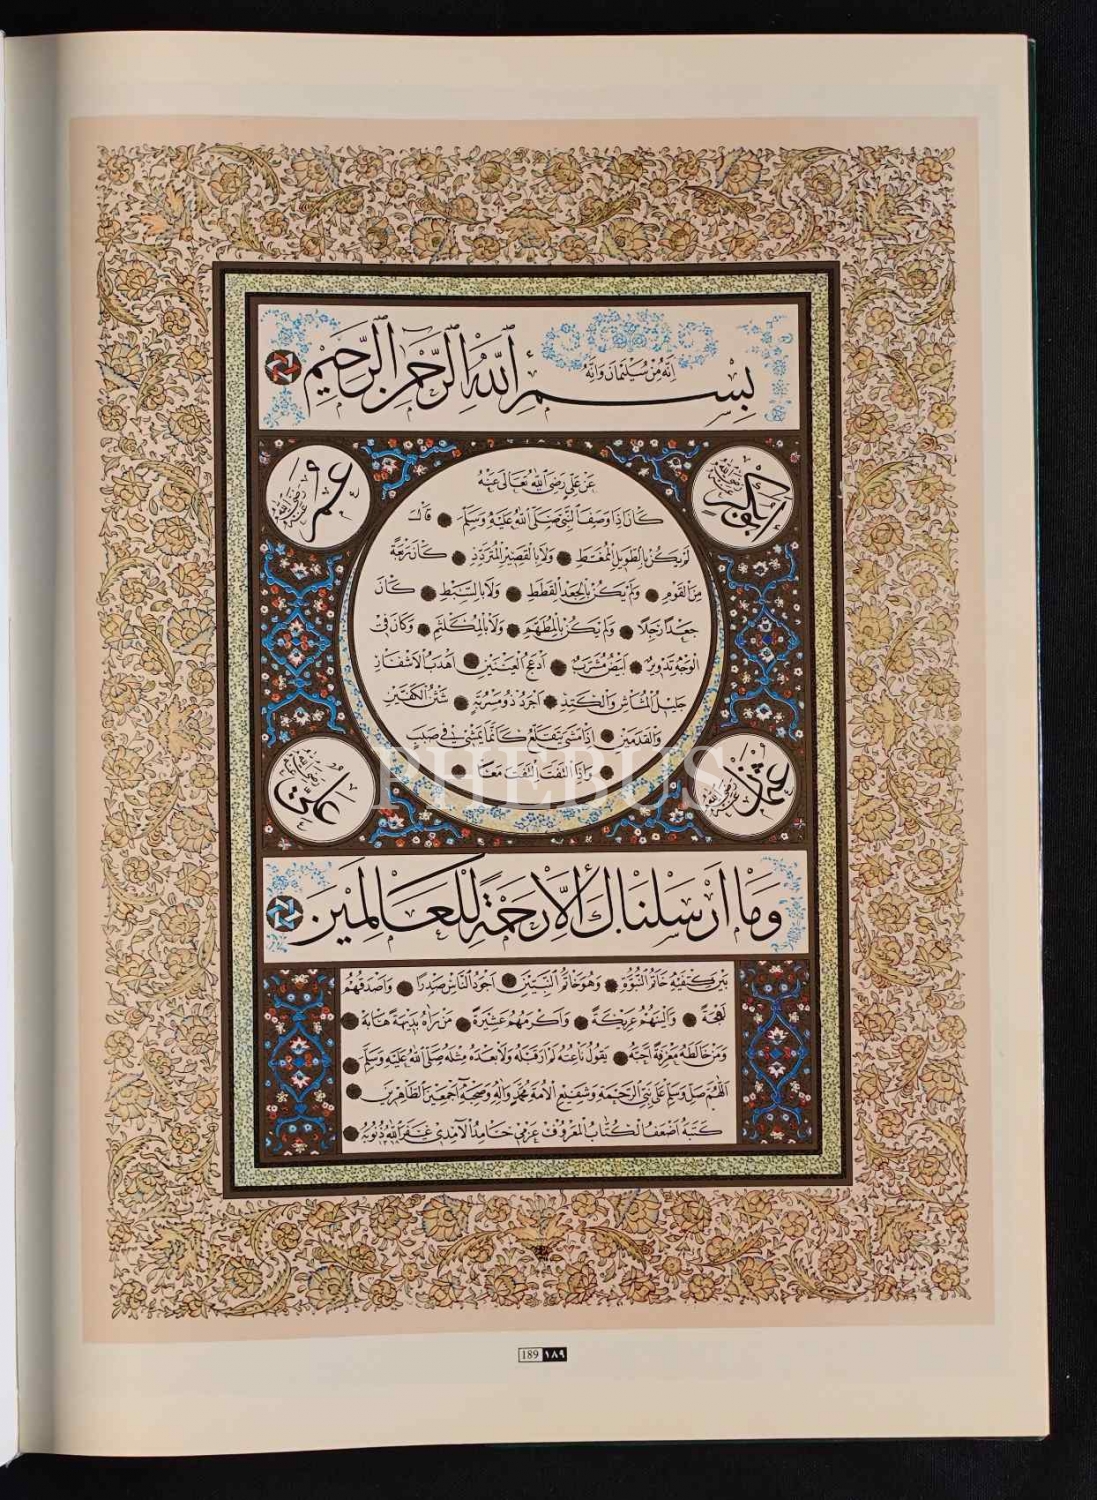 إنه من سليمان وإنه
بسم الله الرحمن الرحيم
أبو بكر رضي الله تعالى عنه
عمر رضي الله عنه
عن علي رضي الله تعالى عنه
كان إذا وصف النبي صلى الله عليه وسلم قال
لم يكن بالطويل الممغط ولا بالقصير المتردد كان ربعة
من القوم ولم يكن بالجعد القطط ولا بالسبط كان
جعدا رجلا ولم يكن بالمطهم ولا بالمكلثم وكان في
الوجه تدوير أبيض مشرب أدعج العينين أهدب الأشفار
جليل المشاش والكتد أجرد ذو مسربة شثن الكفين
والقدمين إذا مشى يتقلع كأنما يمشي في صبب
وإذا التفت التفت معا
عثمان رضي الله عنه
علي رضي الله تعالى عنه
PHEBUS
وما أرسلناك إلا رحمة للعالمين
بين كتفيه خاتم النبوة وهو خاتم النبيين أجود الناس صدرا وأصدقهم
لهجة وألينهم عريكة وأكرمهم عشيرة من رآه بديهة هابه
ومن خالطه معرفة أحبه يقول ناعته لم أر قبله ولا بعده مثله صلى الله عليه وسلم
اللهم صل وسلم على نبي الرحمة وشفيع الأمة محمد وآله وصحبه أجمعين الطاهرين
كتبه أضعف الكتاب المعروف عزمي حامد الآمدي غفر الله ذنوبه
189 ١٨٩